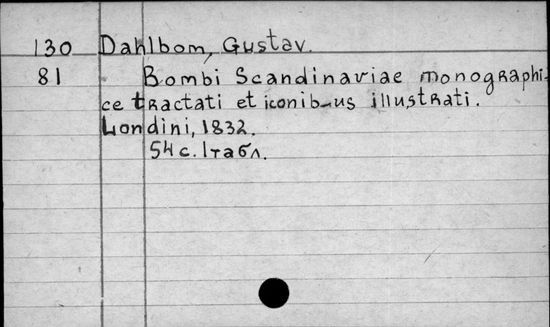 130 Dahlbom, Gustav.
81 Bombi Scandinaviae monographi-
ce tractati et iconib-us illustrati.
Londini, 1832.
54 с. 1 табл.